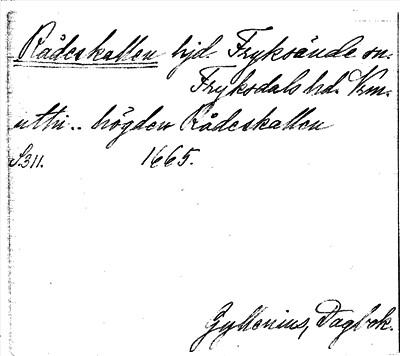 Rådeskallen hjd. Fryksände sn.
Fryksdals hd. Vrm.
utti.. högden Rådeskallen
S.311. 1665.
Gyllenius, Dagbok.